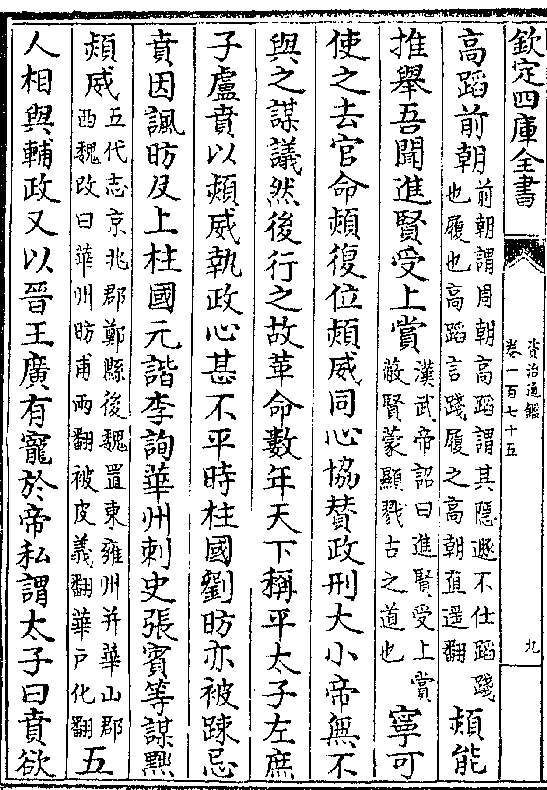 欽定四庫全書
資治通鑑
卷一百七十五
九
高蹈前朝前朝謂周朝高蹈謂其隱遯不仕蹈踐也履也高蹈言踐履之高朝直遥翻熲能
推舉吾聞進賢受上賞漢武帝詔曰進賢受上賞蔽賢蒙顯戮古之道也寧可
使之去官命熲復位熲威同心協賛政刑大小帝無不
與之謀議然後行之故革命數年天下稱平太子左庶
子盧賁以熲威執政心甚不平時柱國劉昉亦被踈忌
賁因諷昉及上柱國元諧李詢華州刺史張賓等謀黜
熲威五代志京兆郡鄭縣後魏置東雍州并華山郡西魏改曰華州昉甫兩翻被皮義翻華戸化翻五
人相與輔政又以晉王廣有寵於帝私謂太子曰賁欲